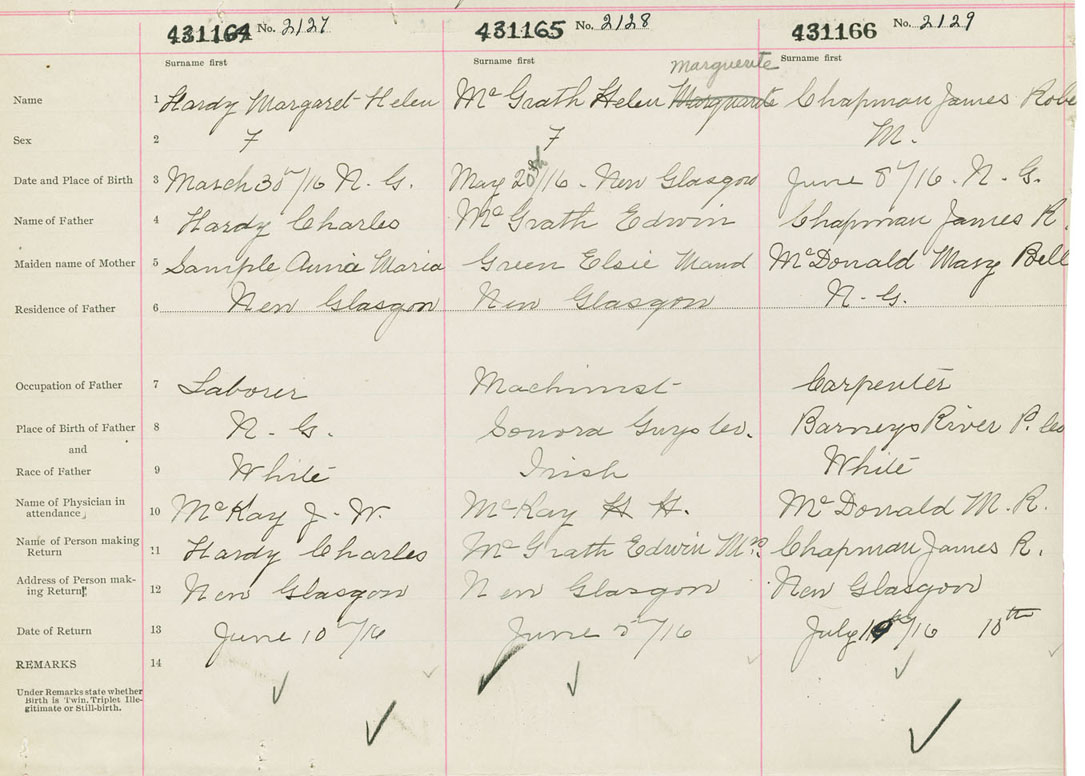 431164 No. 2127 431165 No. 2128 431166 No. 2129
Surname first Surname first Surname first
Marguerite
Name 1 Hardy Margaret Helen McGrath Helen Chapman James Robe
Sex 2 F F M.
Date and Place of Birth 3 March 30/16 N. G. May 20th/16 - New Glasgow June 8/16 - N. G.
Name of Father 4 Hardy Charles McGrath Edwin Chapman James R.
Maiden name of Mother 5 Sample Annie Maria Green Elsie Maud McDonald Mary Bell
Residence of Father 6 New Glasgow New Glasgow N. G.
Occupation of Father 7 Laborer Machinist Carpenter
Place of Birth of Father 8 N. G. Sonora Guys Co. Barneys River P. Co
and
Race of Father 9 White Irish White
Name of Physician in
attendance 10 McKay J. W. McKay H. H. McDonald M. R.
Name of Person making
Return 11 Hardy Charles McGrath Edwin Mrs. Chapman James R.
Address of Person mak-
ing Return 12 New Glasgow New Glasgow New Glasgow
Date of Return 13 June 10/16 June /16 July /16 10th
REMARKS 14
Under Remarks state whether
Birth is Twin, Triplet Ille-
gitimate or Still-birth.